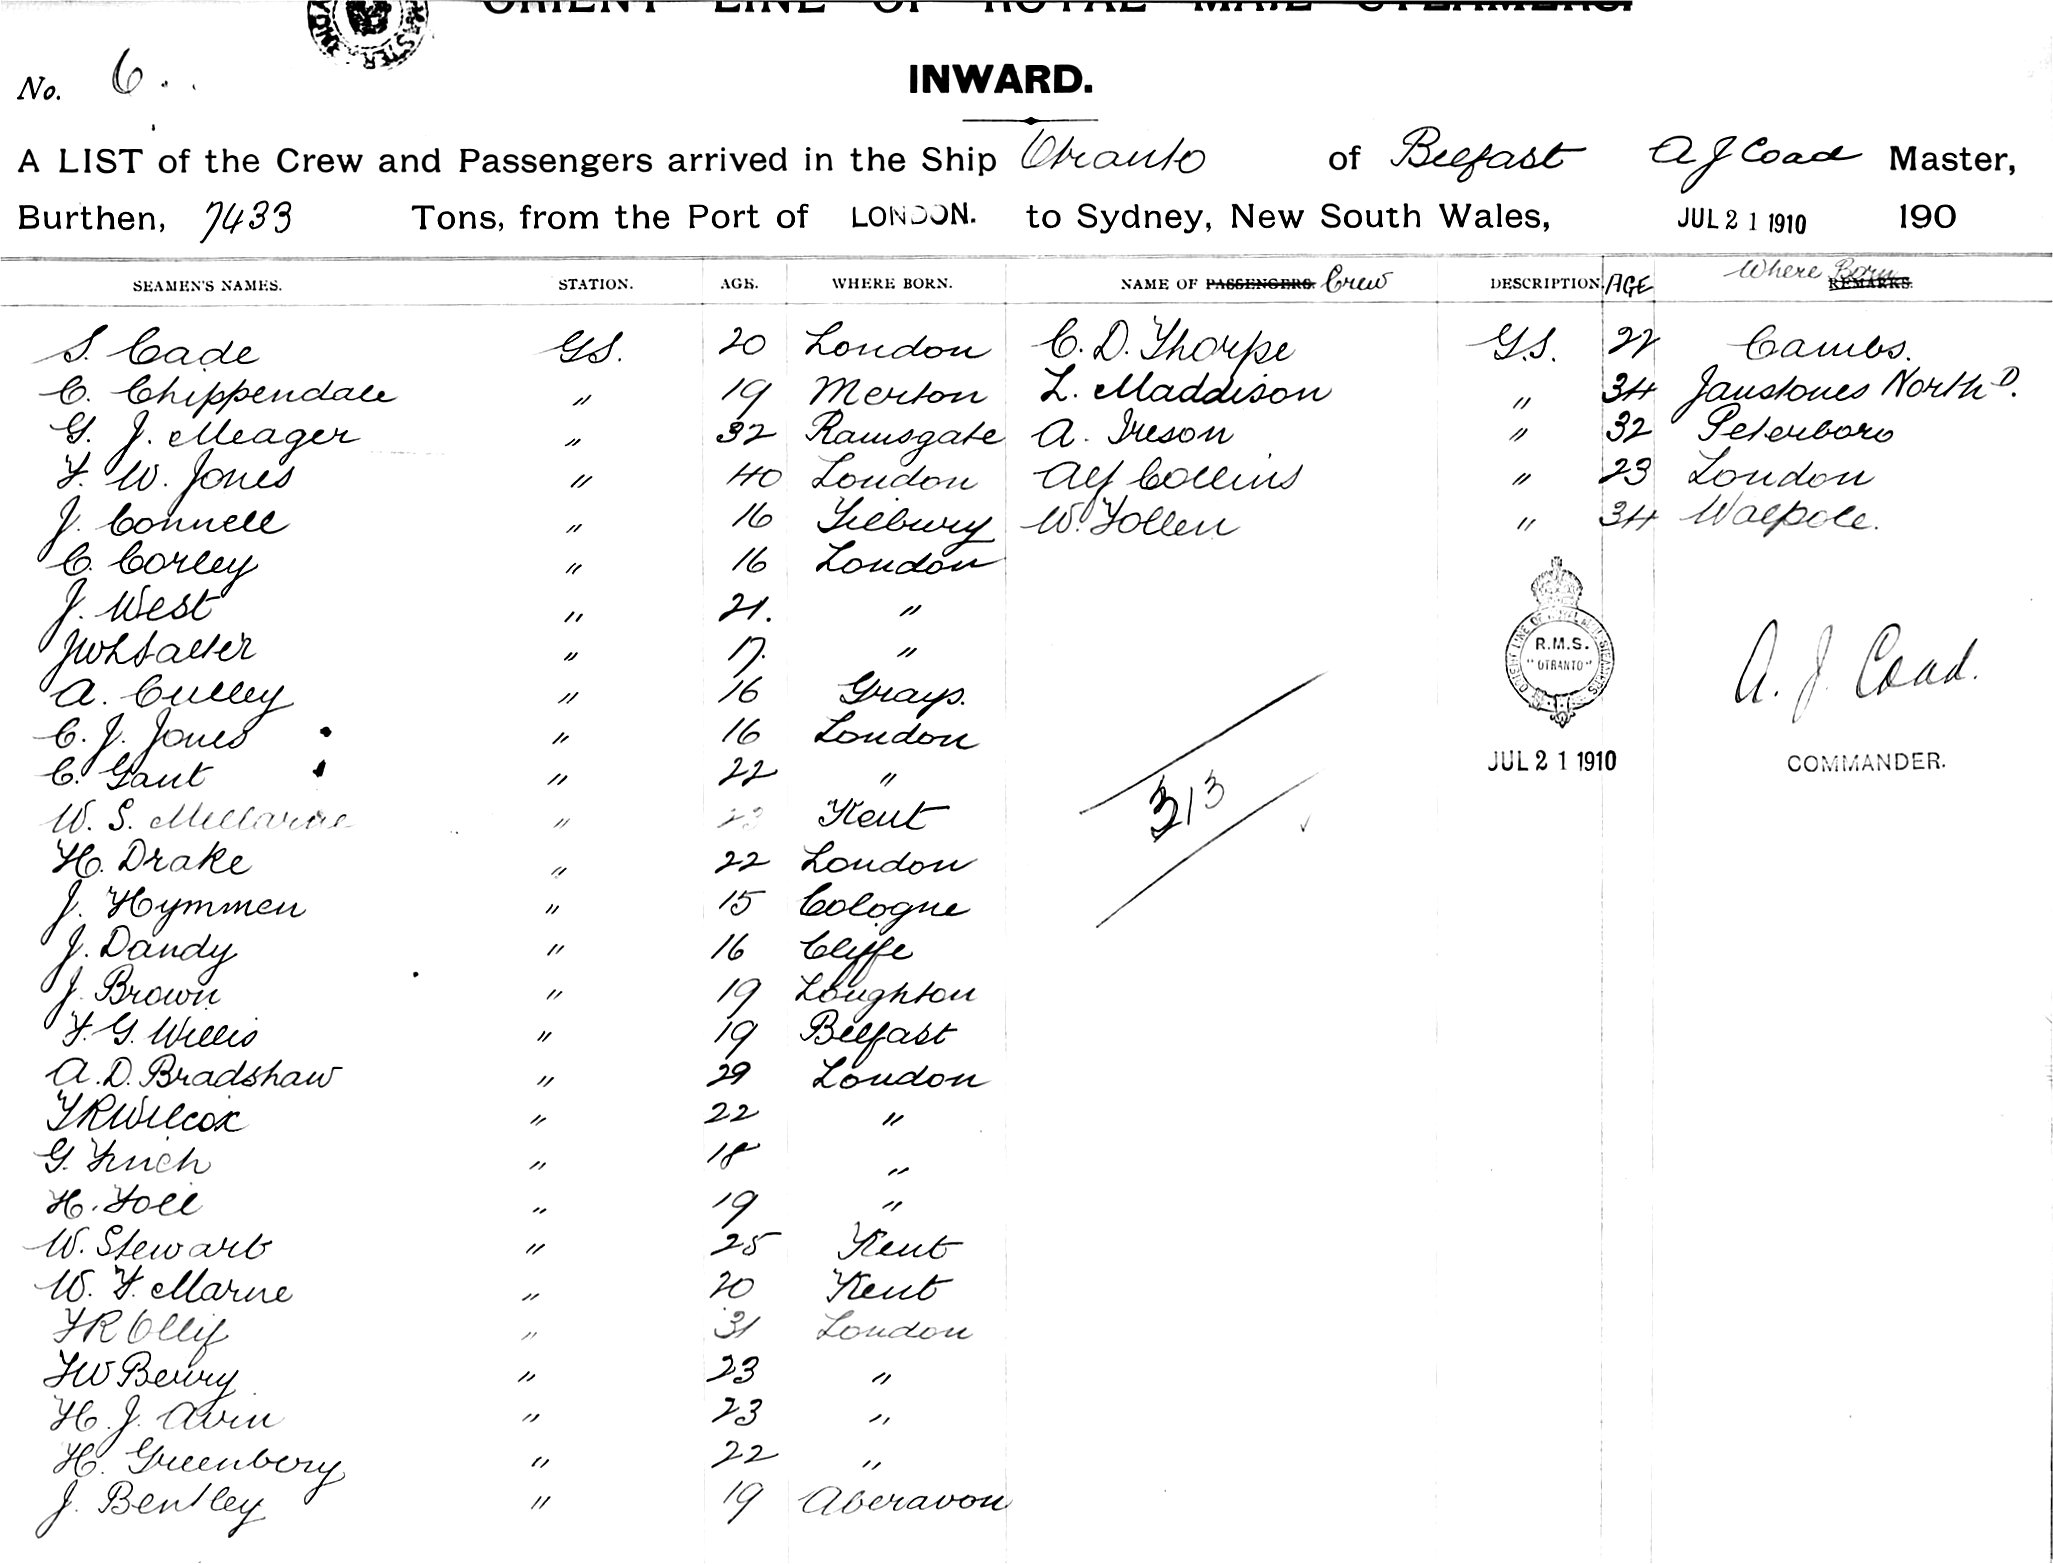 ORIENT LINE OF ROYAL MAIL STEAMERS.
No. 6.
INWARD.
A LIST of the Crew and Passengers arrived in the Ship Otranto of Belfast A J Coad Master,
Burthen, 7433 Tons, from the Port of LONDON. to Sydney, New South Wales, JUL 21 1910 190
SEAMEN'S NAMES. STATION. AGE. WHERE BORN. NAME OF PASSENGERS. Crew DESCRIPTION AGE Where Born REMARKS.
S. Cade GS. 20 London C. D. Thorpe G.S. 22 Cambs.
C. Chippendale " 19 Merton L. Maddison " 34 North D.
G. J. Meager " 32 Ramsgate A. Ireson " 32 Peterboro
F. W. Jones " 40 London Alf Collins " 23 London
J. Connell " 16 Tilbury W. Follen " 34 Walpole.
C. Corley " 16 London
J. West " 21. "
JWL Salter " 17. "
A. Culley " 16 Grays.
C. J. Jones " 16 London
C. Gant " 22 "
W. S. " 23 Kent
H. Drake " 22 London
J. Hymmen " 15 Cologne
J. Dandy " 16 Cliffe
J. Brown " 19 Loughton
F. G. Willis " 19 Belfast
A. D. Bradshaw " 29 London
F R Wilcox " 22 "
G. Finch " 18 "
H. Foll " 19 "
W. Stewart " 25 Kent
W. F. Marne " 20 Kent
F R Ollif " 31 London
F W Berry " 23 "
H. J. Avin " 23 "
H. Greenbery " 22 "
J. Bentley " 19 Aberavon
313
ORIENT LINE OF ROYAL MAIL STEAMERS
R.M.S.
"OTRANTO"
A. J. Coad.
JUL 21 1910 COMMANDER.